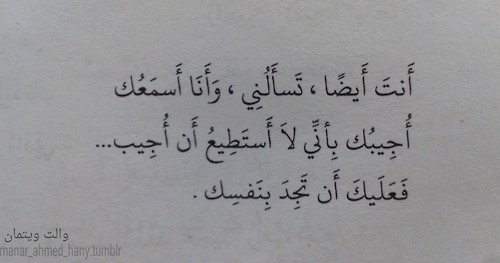 أَنتَ أَيضًا ، تَسأَلُنِي ، وَأَنَا أَسمَعُك
أُجِيبُك بِأنِّي لاَ أَستَطِيعُ أَن أُجِيب...
فَعَلَيكَ أَن تَجِدَ بِنَفسِك .
والت ويتمان
manar_ahmed_hany.tumblr